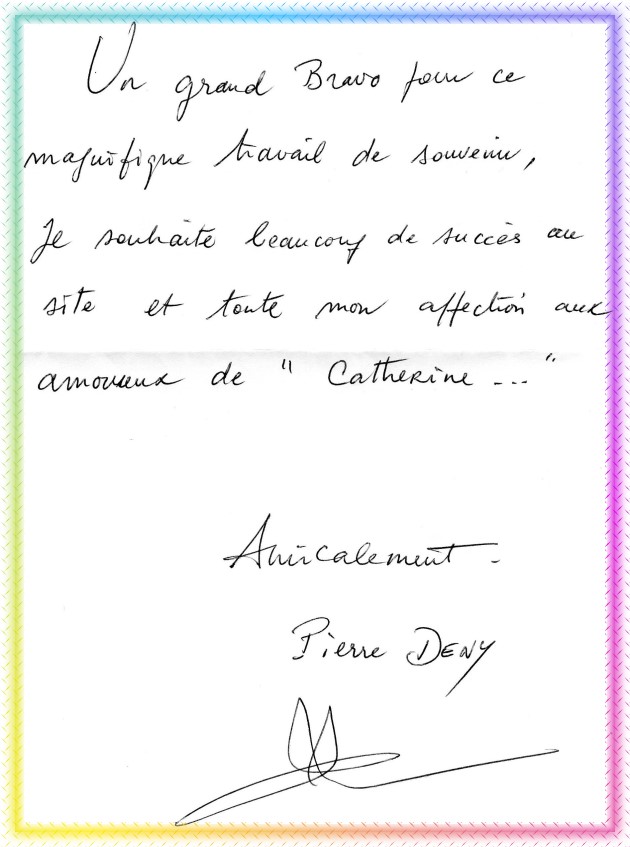 Un grand Bravo pour ce
magnifique travail de souvenir,
Je souhaite beaucoup de succès au
site et toute mon affection aux
amoureux de " Catherine ... "
Amicalement -
Pierre DENY